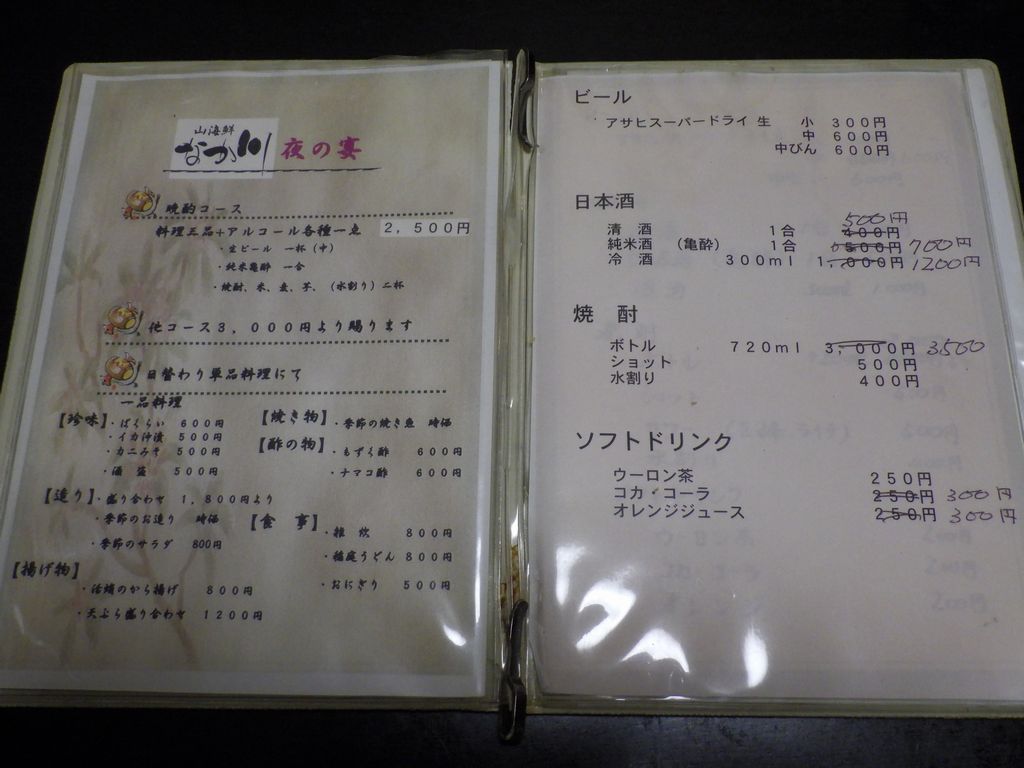 山海鮮
なか川 夜の宴
晩酌コース
料理三品+アルコール各種一点 2,500円
・生ビール 一杯(中)
・純米亀酔 一合
・焼酎、米、麦、芋、(水割り)二杯
他コース3,000円より賜ります
日替わり単品料理にて
一品料理
【珍味】・ばくらい 600円
・イカ沖漬 500円
・カニみそ 500円
・酒盗 500円
【焼き物】・季節の焼き魚 時価
【酢の物】・もずく酢 600円
・ナマコ酢 600円
【造り】・盛り合わせ 1,800円より
・季節のお造り 時価
・季節のサラダ 800円
【食 事】・雑 炊 800円
・稲庭うどん 800円
・おにぎり 500円
【揚げ物】
・活蛸のから揚げ 800円
・天ぷら盛り合わせ 1200円
ビール
アサヒスーパードライ 生 小 300円
中 600円
中びん 600円
日本酒
500円
清 酒 1合 400円
純米酒 (亀酔) 1合 500円 700円
冷 酒 300ml 1,000円 1200円
焼 酎
ボトル 720ml 3,000円 3500
ショット 500円
水割り 400円
ソフトドリンク
ウーロン茶 250円
コカ・コーラ 250円 300円
オレンジジュース 250円 300円